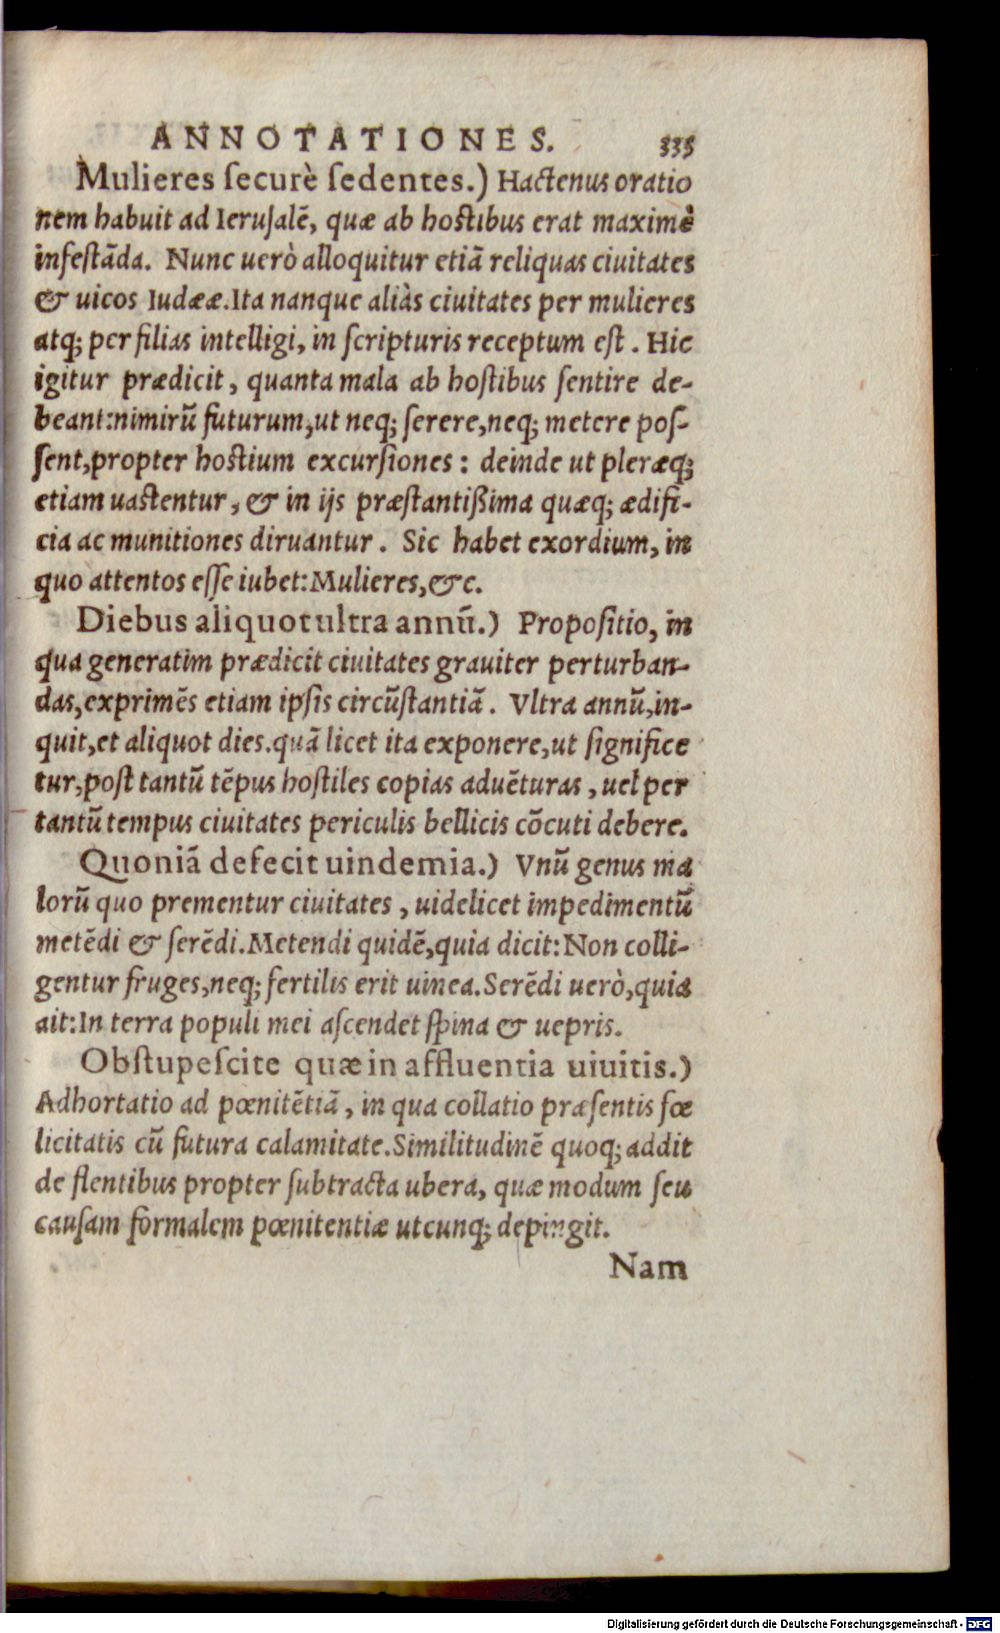 ANNOTATIONES. 335
Mulieres ſecurè ſedentes.) Hactenus oratio
nem habuit ad Ieruſalē, quæ ab hoſtibus erat maximè
infeſtāda. Nunc uerò alloquitur etiā reliquas ciuitates
& uicos Iudææ. Ita nanque aliàs ciuitates per mulieres
atq; per filias intelligi, in ſcripturis receptum eſt. Hic
igitur prædicit, quanta mala ab hoſtibus ſentire de-
beant: nimirū futurum, ut neq; ſerere, neq; metere poſ-
ſent, propter hoſtium excurſiones: deinde ut pleræq;
etiam uaſtentur, & in ijs præſtantißima quæq; ædifi-
cia ac munitiones diruantur. Sic habet exordium, in
quo attentos eſſe iubet: Mulieres, &c.
Diebus aliquot ultra annū.) Propoſitio, in
qua generatim prædicit ciuitates grauiter perturban-
das, exprimēs etiam ipſis circūſtantiā. Vltra annū, in-
quit, et aliquot dies. quā licet ita exponere, ut ſignifice
tur, poſt tantū tēpus hoſtiles copias aduēturas, uel per
tantū tempus ciuitates periculis bellicis cōcuti debere.
Quoniā defecit uindemia.) Vnū genus ma
lorū quo prementur ciuitates, uidelicet impedimentū
metēdi & ſerēdi. Metendi quidē, quia dicit: Non colli-
gentur fruges, neq; fertilis erit uinea. Serēdi uerò, quia
ait: In terra populi mei aſcendet ſpina & uepris.
Obſtupeſcite quæ in affluentia uiuitis.)
Adhortatio ad pœnitētiā, in qua collatio præſentis fœ
licitatis cū futura calamitate. Similitudinē quoq; addit
de flentibus propter ſubtracta ubera, quæ modum ſeu
cauſam formalem pœnitentiæ utcunq; depingit.
Nam
Digitalisierung gefördert durch die Deutsche Forschungsgemeinschaft - DFG